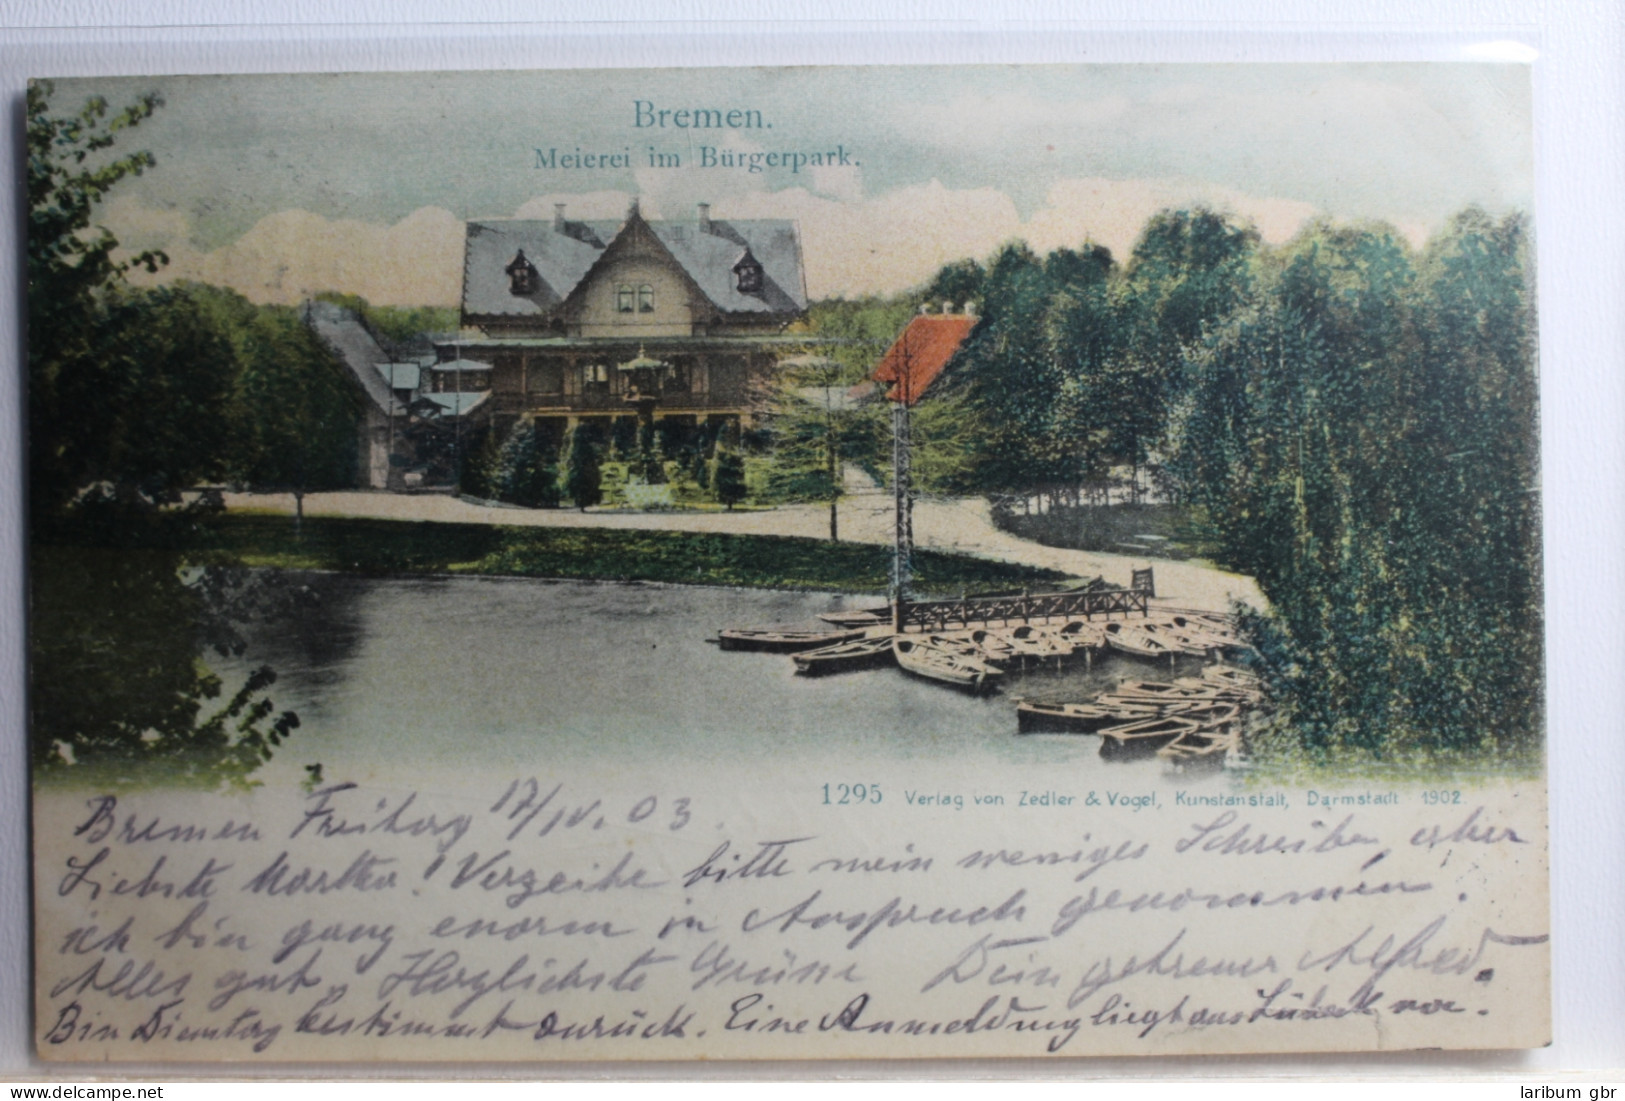 Bremen.
Meierei im Bürgerpark.
1295 Verlag von Zedler & Vogel, Kunstanstalt, Darmstadt 1902.
Bremen Freitag 17/IV. 03.
Liebste Martha! Verzeihe bitte mein weniges Schreiben, aber
ich bin ganz enorm in Anspruch genommen.
Alles gut. Herzlichste Grüsse Dein getreuer Alfred.
Bin Dienstag bestimmt zurück. Eine Anmeldung liegt aus Lübeck vor.
laribum gbr